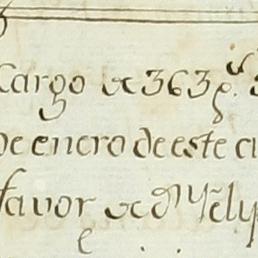 Cargo de 363 p.s
De enero de este a
favor de d.n Felip